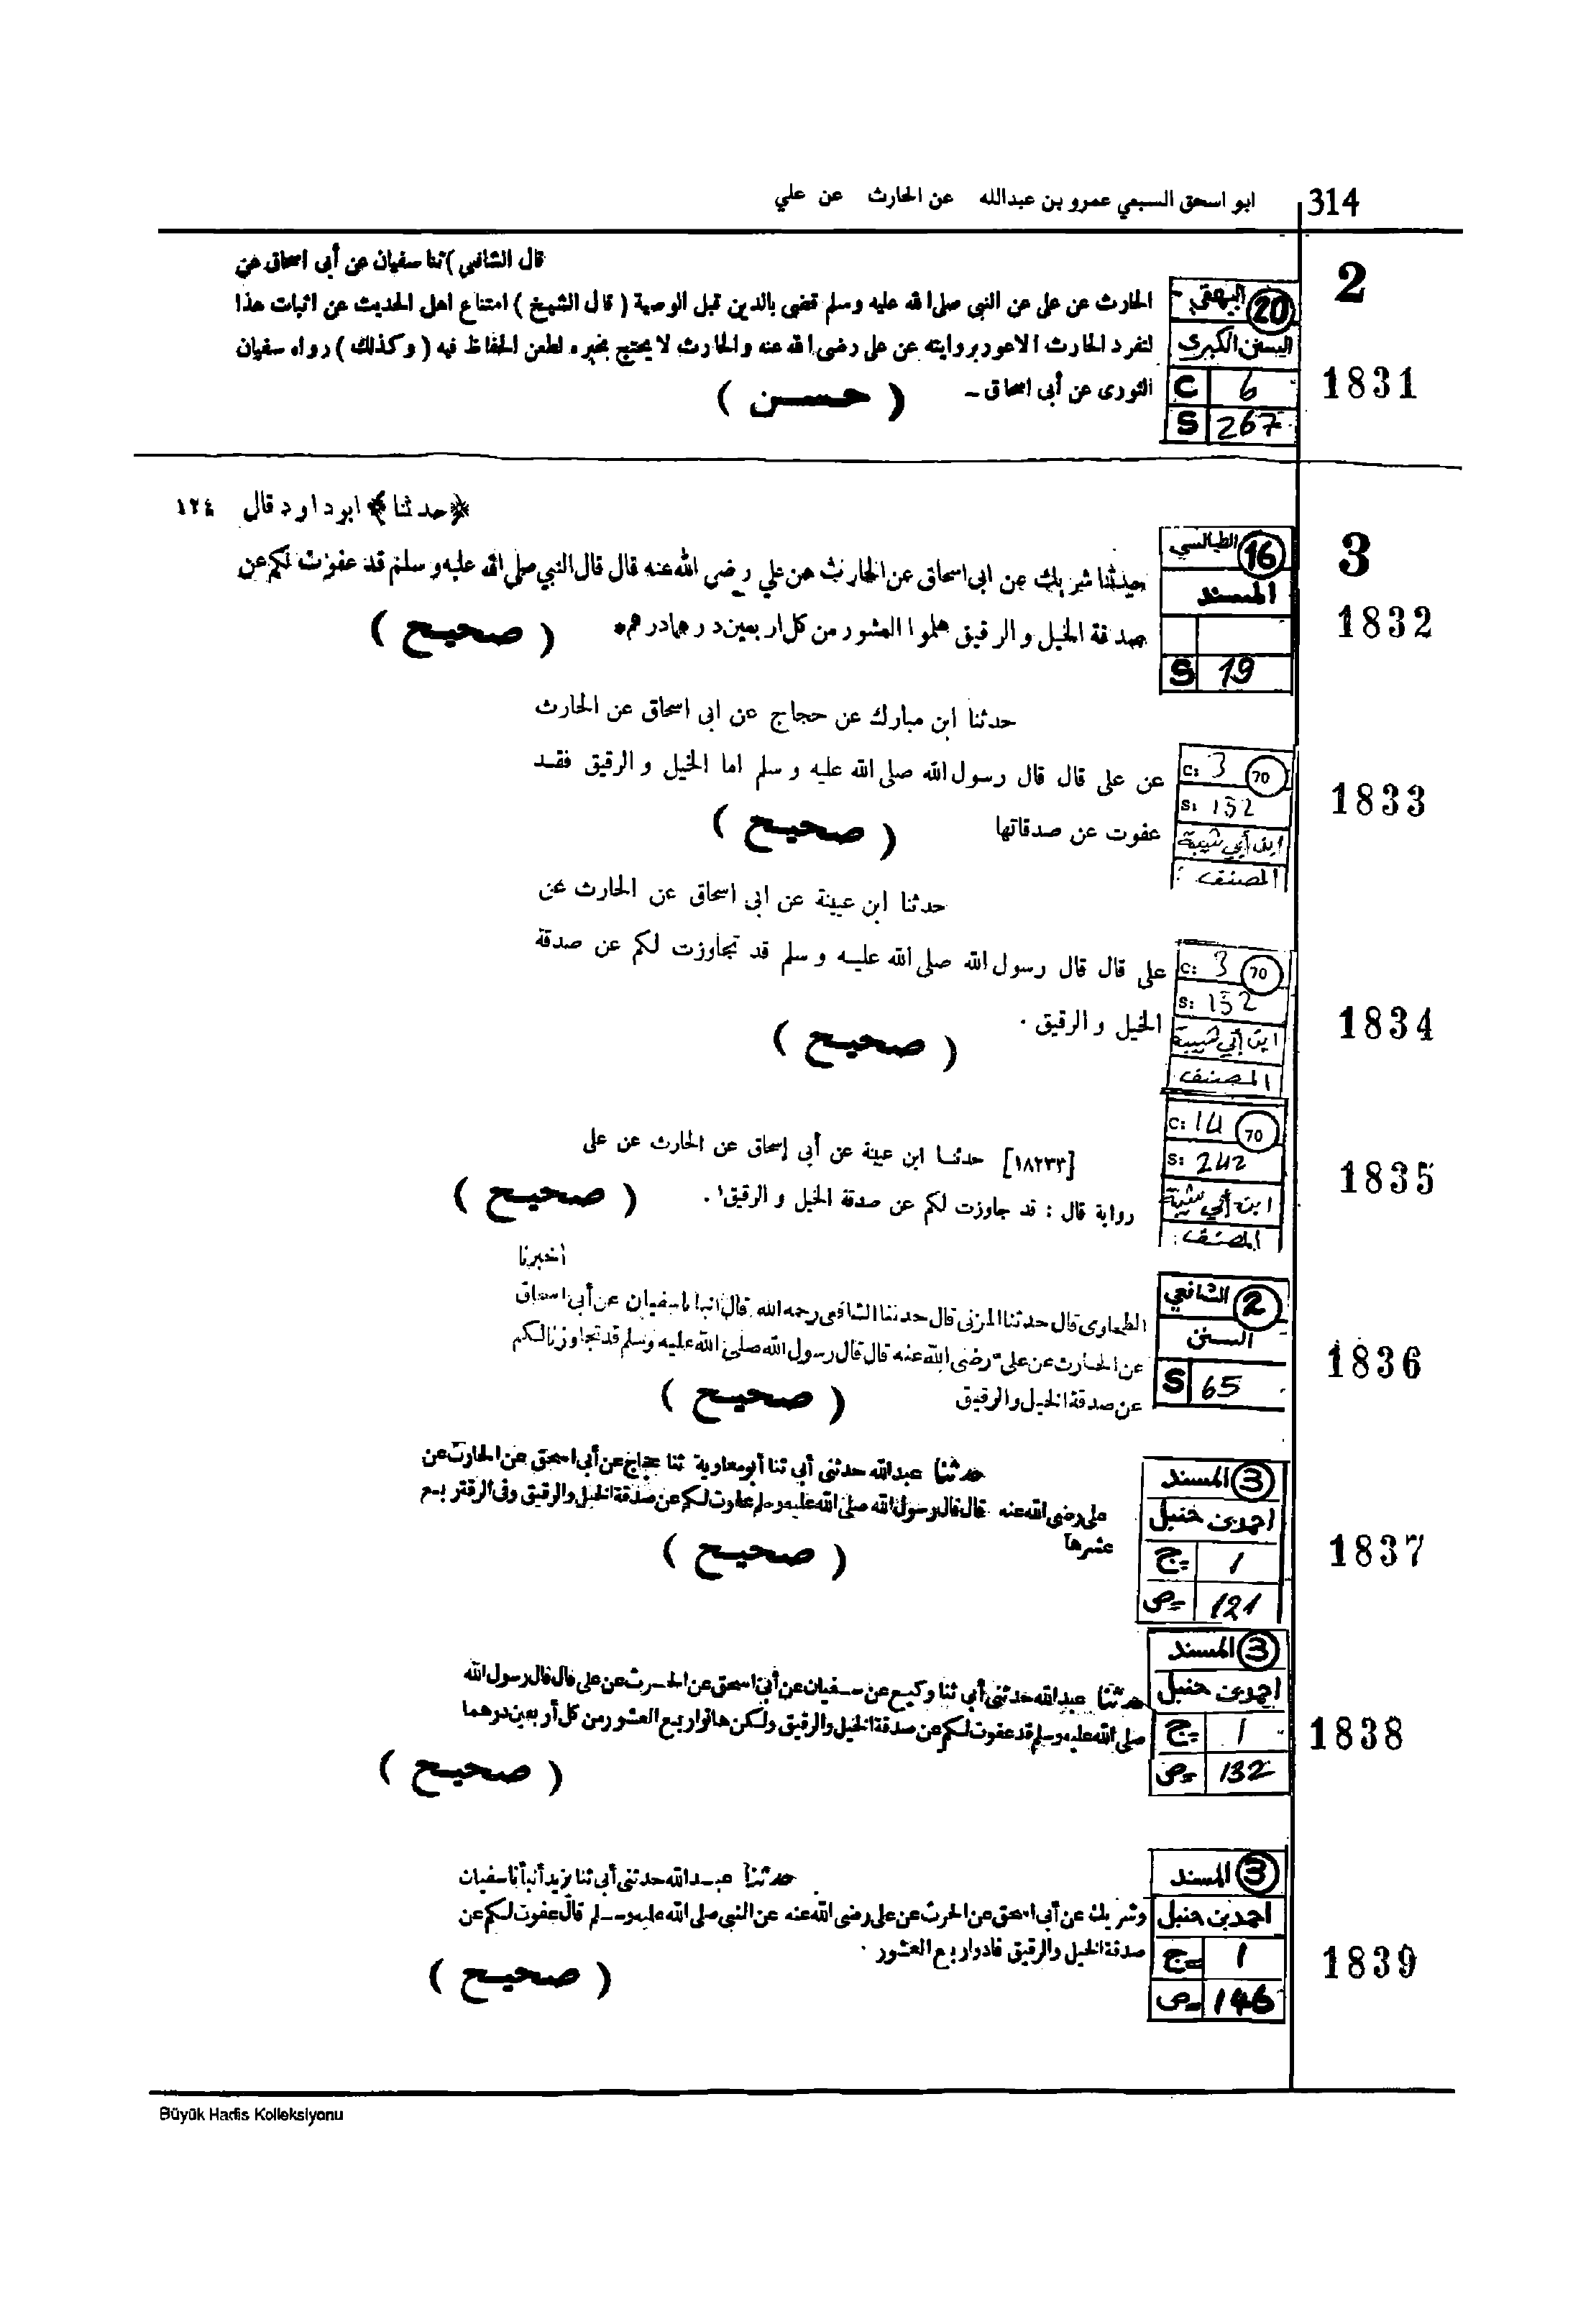 314 ابو اسحق السبعي عمرو بن عبدالله عن الحارث عن علي
2
قال الشافعي ) ثنا سفيان عن أبى اسحاق عن
الحارث عن على عن النبي صلى الله عليه وسلم قضى بالدين قبل الوصية ( قال الشيخ ) امتناع اهل الحديث عن اثبات هذا
لتفرد الحارث الاعور بروايته عن على رضى الله عنه والحارث لا يحتج بخبره لطعن الحفاظ فيه ( وكذلك ) رواه سفيان
الثورى عن أبى اسحاق -
( حسن )
البيهقي - 20
السنن الكبرى
C 6
S 267
1831
3
﴿ حدثنا ﴾ ابو داود قال ١٢٤
حدثنا شريك عن ابى اسحاق عن الحارث عن علي رضى الله عنه قال قال النبي صلى الله عليه وسلم قد عفوت لكم عن
صدقة الخيل والرقيق هلموا العشور من كل اربعين درهما درهم*
( صحيح )
الطيالسي 16
المسند
S 19
1832
حدثنا ابن مبارك عن حجاج عن ابى اسحاق عن الحارث
عن على قال قال رسول الله صلى الله عليه و سلم اما الخيل و الرقيق فقد
عفوت عن صدقاتها
( صحيح )
C: 3 70
S: 152
ابن أبي شيبة
المصنف :
1833
حدثنا ابن عيينة عن ابى اسحاق عن الحارث عن
على قال قال رسول الله صلى الله عليه و سلم قد تجاوزت لكم عن صدقة
الخيل و الرقيق .
( صحيح )
C: 3 70
S: 152
ابن أبي شيبة
المصنف
1834
[١٨٢٣٣] حدثنا ابن عيينة عن أبي إسحاق عن الحارث عن على
رواية قال : قد جاوزت لكم عن صدقة الخيل و الرقيق¹ .
( صحيح )
C: 14 70
S: 242
ابن أبي شيبة
المصنف :
1835
أخبرنا
الطحاوى قال حدثنا المزنى قال حدثنا الشافعى رحمه الله قال انبانا سفيان عن أبى اسحاق
عن الحارث عن على رضى الله عنه قال قال رسول الله صلى الله عليه وسلم قد تجاوزنا لكم
عن صدقة الخيل والرقيق
( صحيح )
الشافعي 2
السنن
S 65
1836
حدثنا عبدالله حدثنى أبى ثنا أبو معاوية ثنا حجاج عن أبى اسحق عن الحارث عن
على رضى الله عنه قال قال رسول الله صلى الله عليه وسلم عفوت لكم عن صدقة الخيل والرقيق وفى الرقة ربع
عشرها
( صحيح )
المسند 3
احمد بن حنبل
ج 1
ص 121
1837
حدثنا عبدالله حدثنى أبى ثنا وكيع عن سفيان عن أبى اسحق عن الحرث عن على قال قال رسول الله
صلى الله عليه وسلم قد عفوت لكم عن صدقة الخيل والرقيق ولكن هاتوا ربع العشور من كل أربعين درهما
( صحيح )
المسند 3
احمد بن حنبل
ج 1
ص 132
1838
حدثنا عبدالله حدثنى أبى ثنا يزيد أنبأنا سفيان
وشريك عن أبى اسحق عن الحرث عن على رضى الله عنه عن النبي صلى الله عليه وسلم قال عفوت لكم عن
صدقة الخيل والرقيق فادوا ربع العشور .
( صحيح )
المسند 3
احمد بن حنبل
ج 1
ص 146
1839
Büyük Hadis Kolleksiyonu